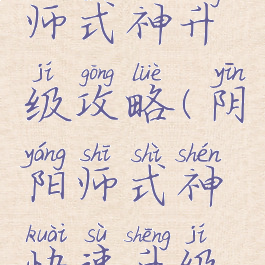 师式神升
jí gōng lüè yīn
级攻略(阴
yáng shī shì shén
阳师式神
kuài sù shēng jí
快速升级